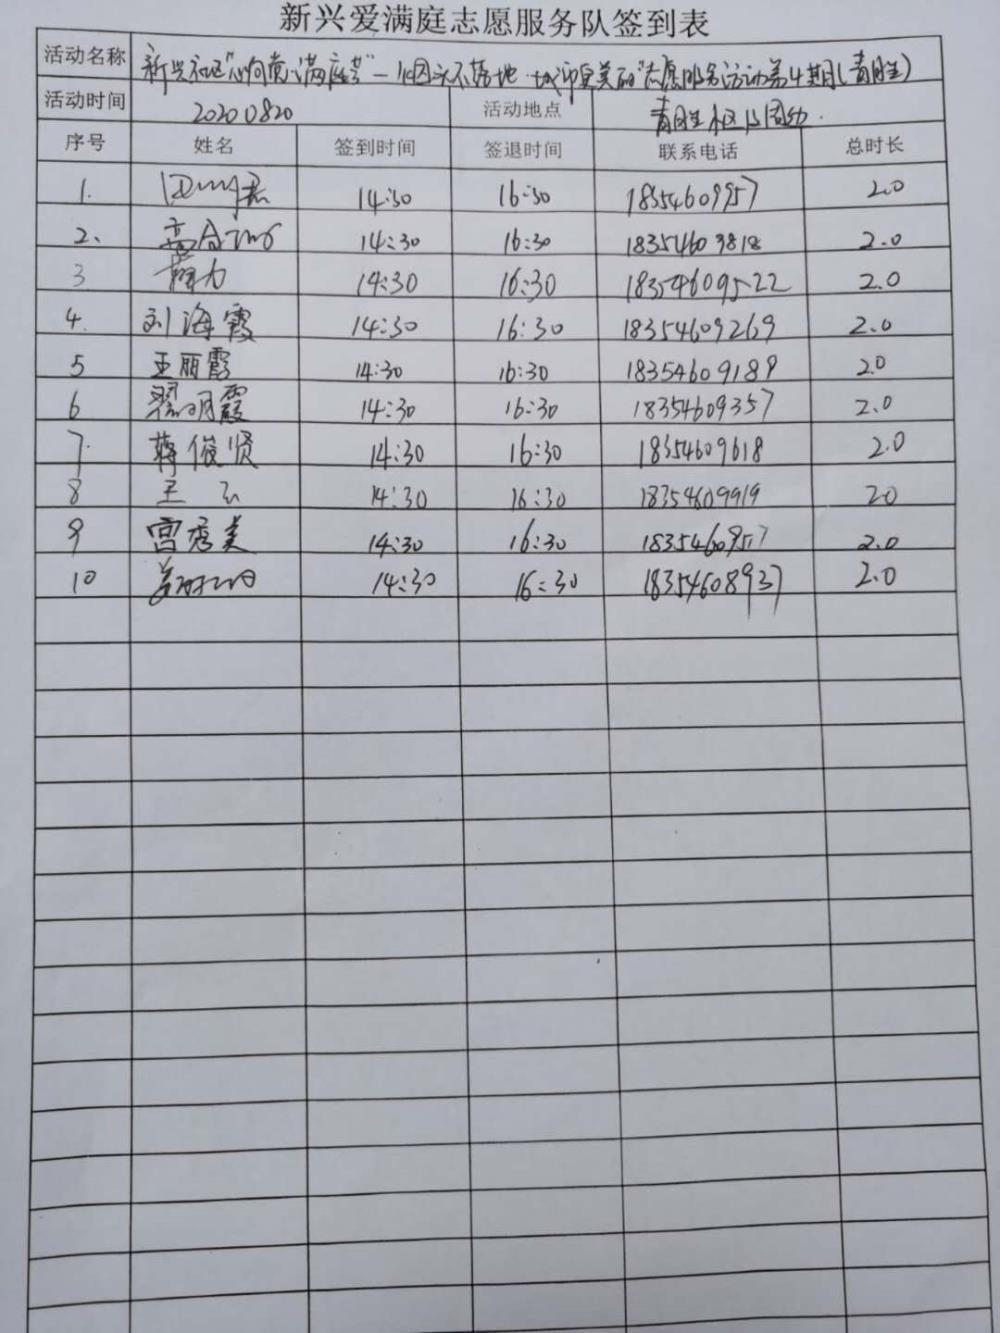 新兴爱满庭志愿服务队签到表
活动名称 新兴社区"心向党·满庭芳"—"烟头不落地·城市更美丽"志愿服务活动第4期(青胜)
活动时间 20200820 活动地点 青胜社区及周边.
序号 姓名 签到时间 签退时间 联系电话 总时长
1. 14:30 16:30 18354609957 2.0
2. 14:30 16:30 18354609818 2.0
3 14:30 16:30 18354609522 2.0
4. 刘海霞 14:30 16:30 18354609269 2.0
5 王丽霞 14:30 16:30 18354609189 2.0
6 翟明霞 14:30 16:30 18354609357 2.0
7. 蒋俊贤 14:30 16:30 18354609618 2.0
8 王云 14:30 16:30 18354609919 2.0
9 宫秀美 14:30 16:30 18354609517 2.0
10 14:30 16:30 18354608937 2.0